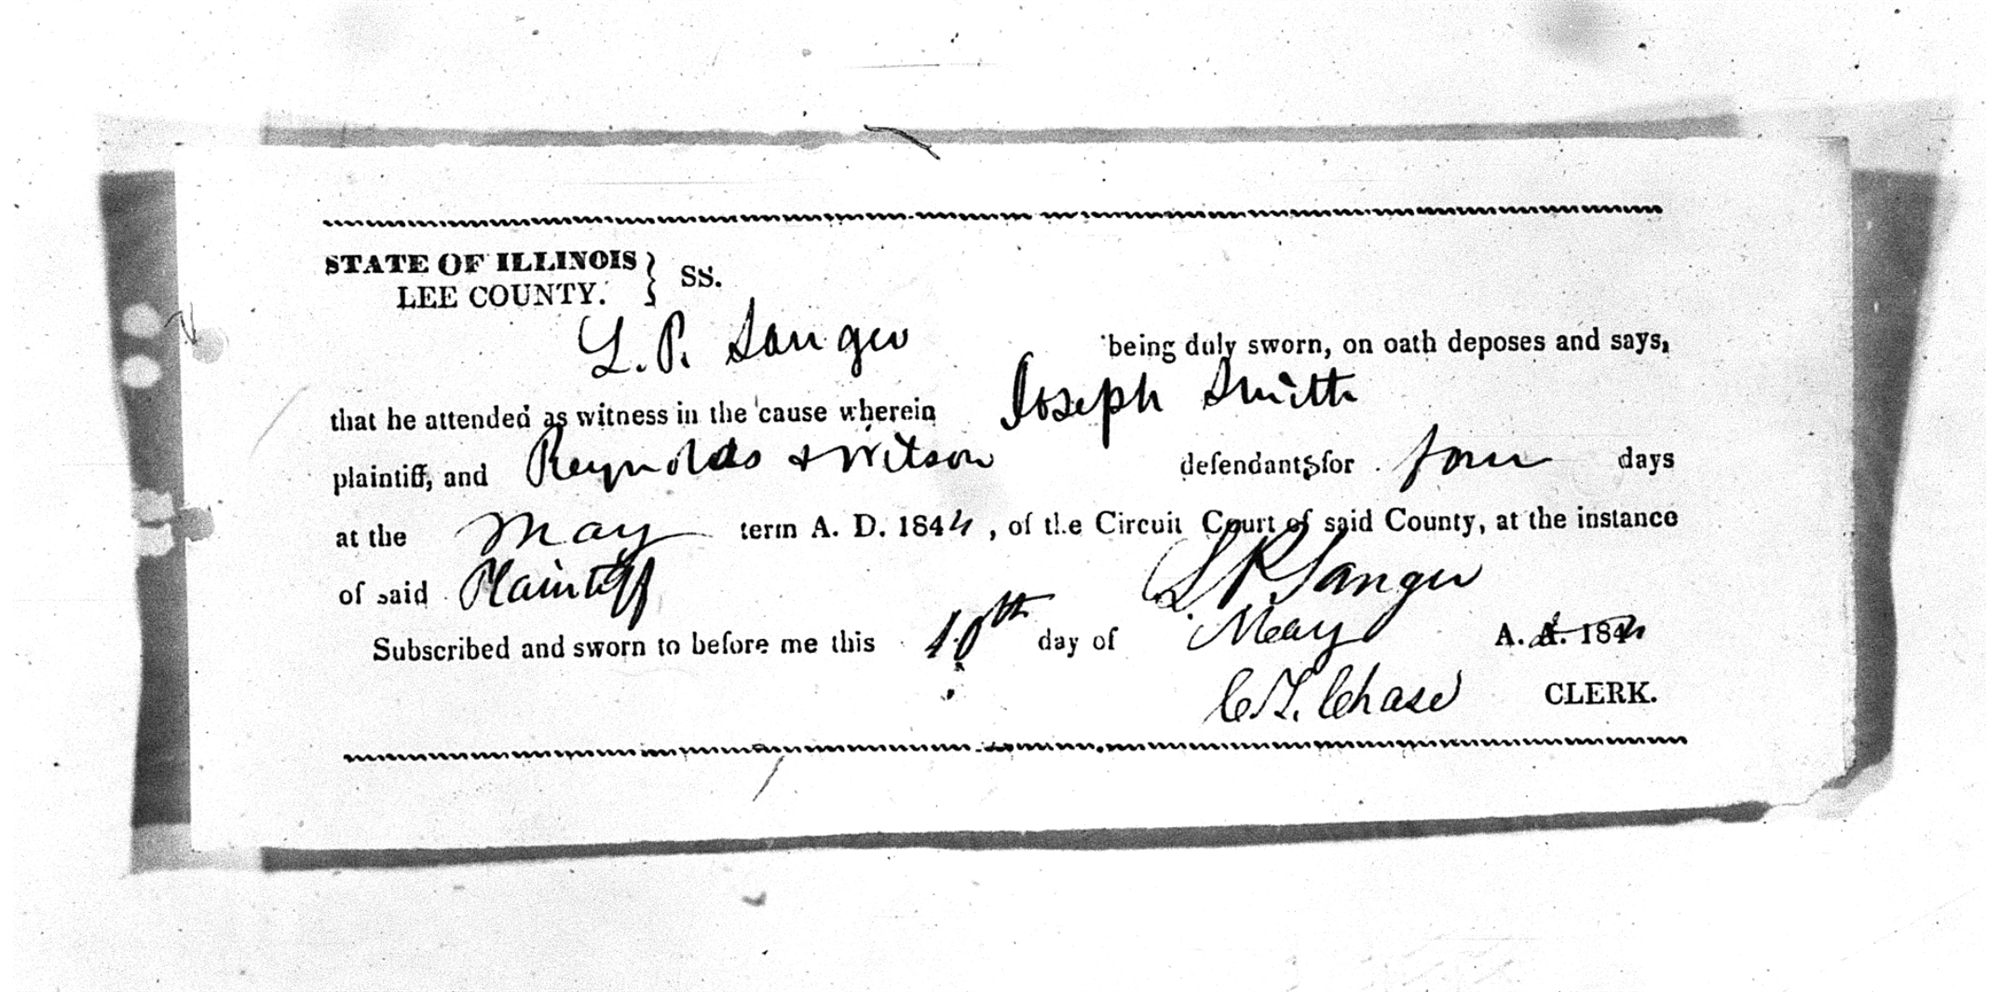 STATE OF ILLINOIS } SS.
LEE COUNTY.
L. P. Sanger being duly sworn, on oath deposes and says,
that he attended as witness in the cause wherein Joseph Smith
plaintiff, and Reynolds & Wilson defendants for four days
at the May term A. D. 1844, of the Circuit Court of said County, at the instance
of said Plaintiff L P Sanger
Subscribed and sworn to before me this 10th day of May A. D. 1844
C. T. Chase CLERK.